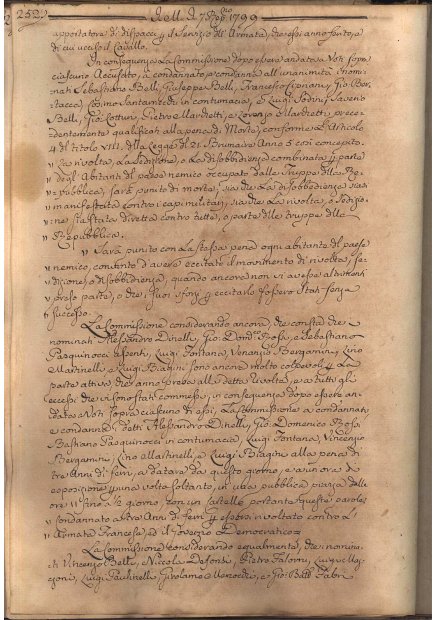 252
7 1799
apportatore di dispacci p il Servizio dell' Armata, che essi anno ferito, e
di cui ucciso il Cavallo.
In conseguenza La Commissione dopo essere andata a Voti sopra
ciascuno Accusato, à condannato e condanna all' unanimità i nomi-
nati Sebastiano Belli, Giuseppe Belli, Francesco Cipriani, Gio. Ber-
tacca, Cosimo Santamedi in contumacia, e Luigi Sodini, Saverio
Belli, Gio. Cotturi, Pietro Ilardetti, e Lorenzo Ilardetti, prece-
dentemente qualificati alla pena di Morte, conforme L' Articolo
4 del titolo VIII. della Legge de 21. Brumaire Anno 5 così concepito.
" La rivolta, La Sedizione, o La disobbidienza combinata p parte
" degl' Abitanti del paese nemico occupato dalle Truppe della Re-
" pubblica, sarà punito di morte, sia che La disobbidienza siasi
" manifestata contro i capi militari, sia che La rivolta, o Sedizio-
" ne sia stata diretta contro tutte, o parte delle truppe della
" Repubblica.
" Sarà punito con La stessa pena ogni abitante del paese
" nemico, convinto d' avere eccitato il movimento di rivolta, se-
" dizione, o disobbidienza, quando ancora non vi avesse altrimenti
" preso parte, o che i suoi sforzi p eccitarlo fossero stati senza
" successo.
La Commissione considerando ancora, che consta che i
nominati Alessandro Dinelli, Gio: Domco Bosi, e Sebastiano
Pasquinocci assenti, Luigi Fontana, Venanzio Bergamini, Cino
Martinelli e Luigi Biagini sono ancora molto colpevoli p La
parte attiva che anno presa alla detta rivolta, e a tutti gli
eccessi che si sono stati commessi, in conseguenza dopo essere an-
data a Voti sopra ciascuno di essi, La Commissione à condannato
e condanna i detti Alessandro Dinelli, Gio: Domenico Bosi,
Bastiano Pasquinocci in contumacia, Luigi Fontana, Vincenzio
Bergamini, Cino Martinelli, e Luigi Biagini alla pena di
tre Anni di ferri, a datare da questo giorno, e a un' ora di
esposizione p una volta soltanto, in una pubblica piazza dalle
ore 11 fino a ½ giorno, con un Cartello portante queste parole
Condannato a tre Anni di ferri p essersi rivoltato contro L'
Armata Francese, ed il Governo Democratico =
La Commissione considerando egualmente, che i nomina-
ti Vincenzo Belli, Niccola Pietro Luigi
Luigi Paulinelli, Girolamo e Gio: Batta Fabri